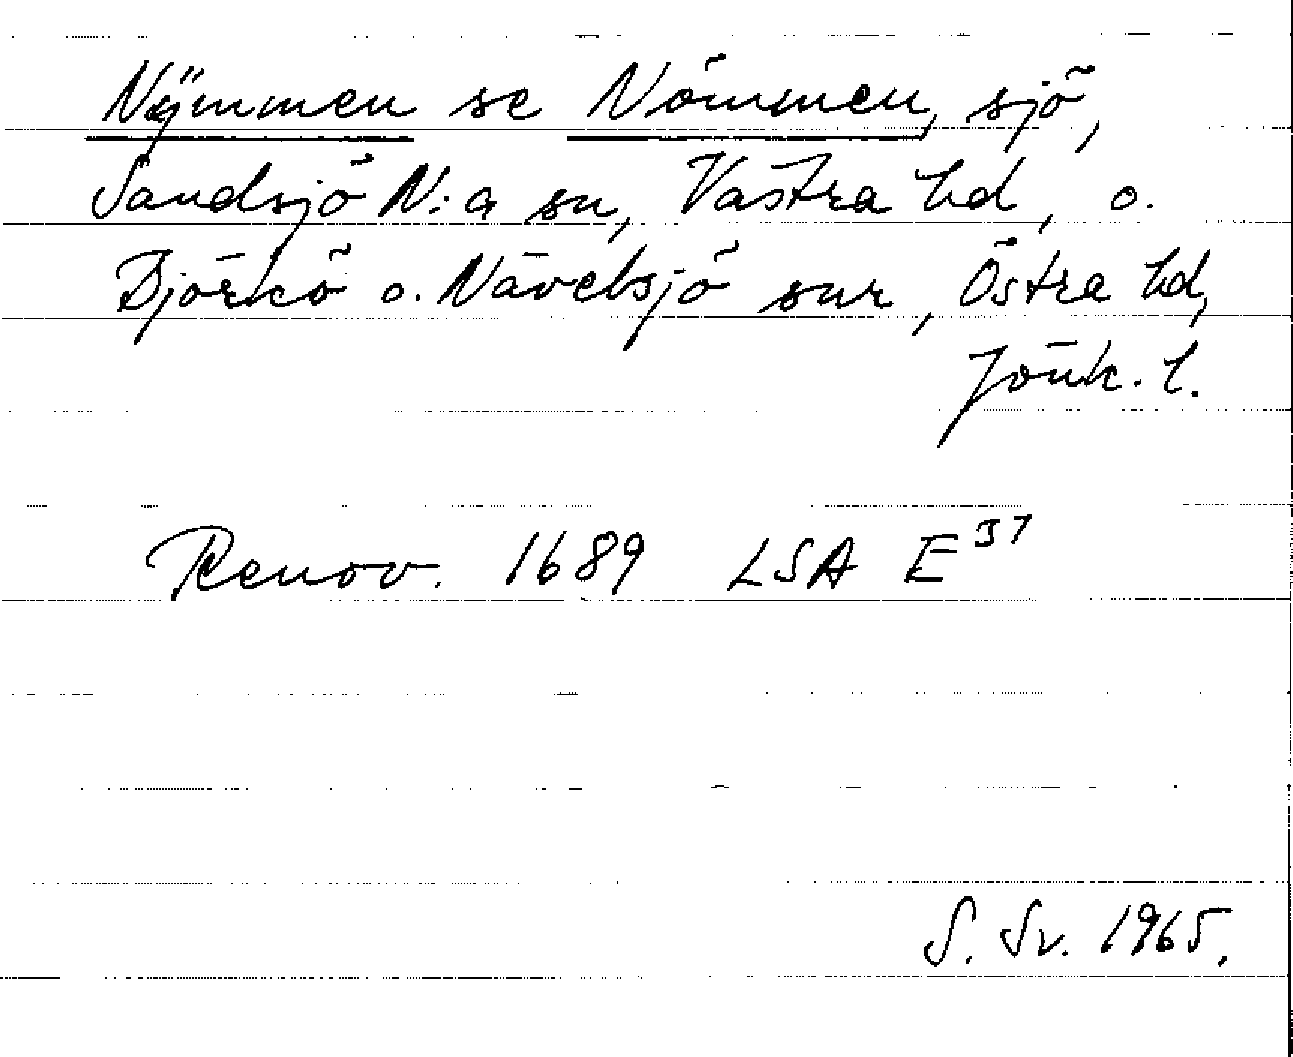 Nÿmmen se Nömmen, sjö,
Sandsjö N:a sn, Västra hd, o.
Björkö o. Nävelsjö snr, Östra hd,
Jönk. l.
Renov. 1689 LSA E³⁷
S. Sv. 1965.